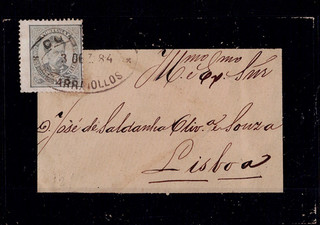 3 DE 84
ARRAIOLLOS
Illmo Exmo Snr
José de Saldanha Oliva. e Souza
Lisboa